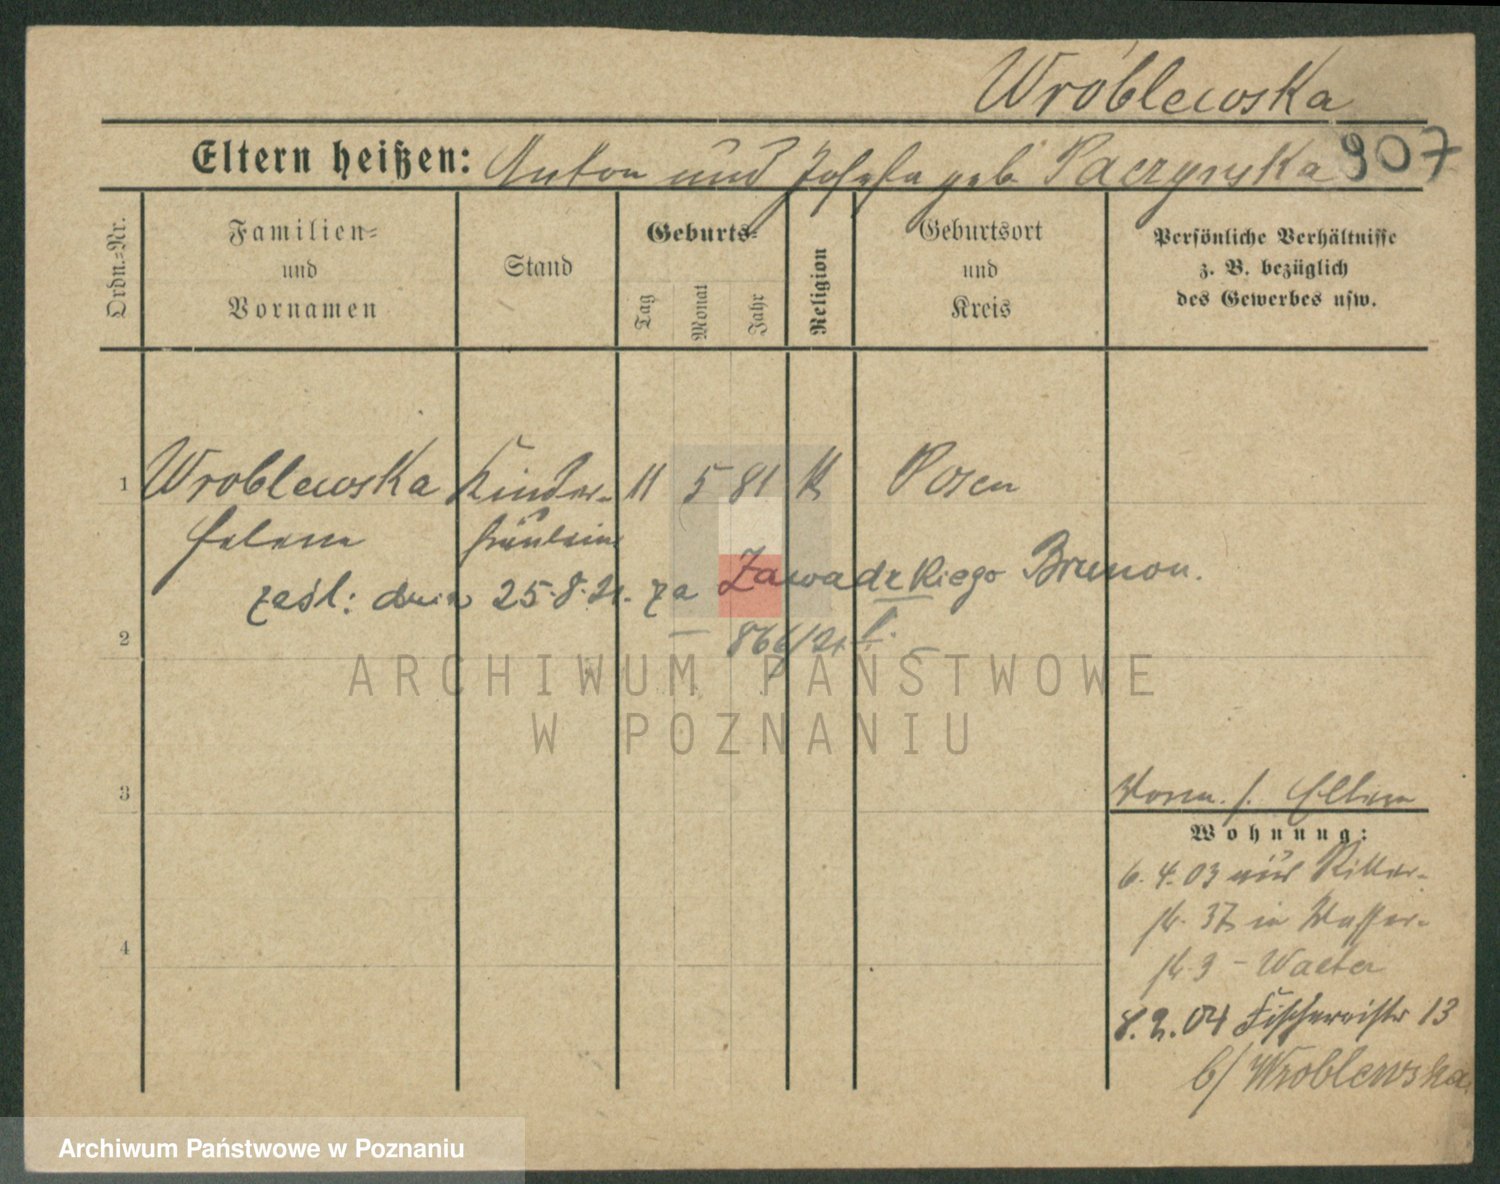 Wróblewska
Eltern heißen: Anton und Josefa geb. Paczynska 907
Ordn.-Nr.
Familien- und Vornamen
Stand
Geburts-
Tag
Monat
Jahr
Religion
Geburtsort und Kreis
Persönliche Verhältnisse
z. B. bezüglich
des Gewerbes usw.
1 Wroblewska Kinder- 11 5 81 K Posen
Helene fräulein
zaśl: dnia 25.8.21. za Zawadzkiego Brunon.
2
866/21
3
Vorm. s. Eltern
Wohnung:
6.4.03 aus Ritter-
str. 37 in Wasser-
4
str. 3 - Walter
8.2.04 Fischereistr 13
b/ Wroblewska
ARCHIWUM PAŃSTWOWE
W POZNANIU
Archiwum Państwowe w Poznaniu